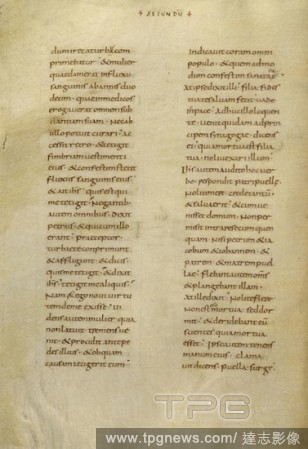 + SECUNDU +
dum iret a turbis com
primebatur · & mulier
quaedam erat in fluxu
sanguinis ab annis duo
decim · quae in medicos
erogaverat omnem sub
stantiam suam · Nec ab
ullo potuit curari · Ac
cessit retro · & tetigit
fimbriam vestimenti
eius · & confestim stetit
fluxus sanguinis eius
& ait ihs · Quis est qui
me tetigit · Negantib;
autem omnibus · Dixit
petrus · & qui cum illo
erant · praeceptor
turbae te conprimunt
& affligunt · & dicis ·
quis me tetigit · & dixit
ihs · tetigit me aliquis ·
Nam & ego novi virtu
tem de me exisse · Vi
dens autem mulier quia
non latuit · tremens ve
nit · & procidit ante pe
des illius · & ob quam
causam tetigerit eum
Indicavit coram omni
populo · & quemadmo
dum confestim sanata
At ipse dixit illi · filia fides
tua te salvam fecit · vade
in pace · Adhuc illo loquen
te · venit quidam ad prin
cipem synagogae · dicens
ei · quia mortua est filia
tua · noli vexare illum ·
Ihs autem audito hoc ver
bo · respondit patri puellae ·
Noli timere · crede tantū
& salva erit · & cum ve
nisset domum · Non per
misit intrare secum quem
quam · nisi petrum & ia
cobum & iohannem · &
patrem · & matrem puel
lae · flebant autem omnes
& plangebant illam ·
At ille dixit · Nolite flere ·
Non est mortua sed dor
mit · & deridebant eū
scientes quia mortua
esset · Ipse autem tenens
manum eius · clama
vit dicens · puella surge ·
TPG
www.tpgnews.com/達志影像